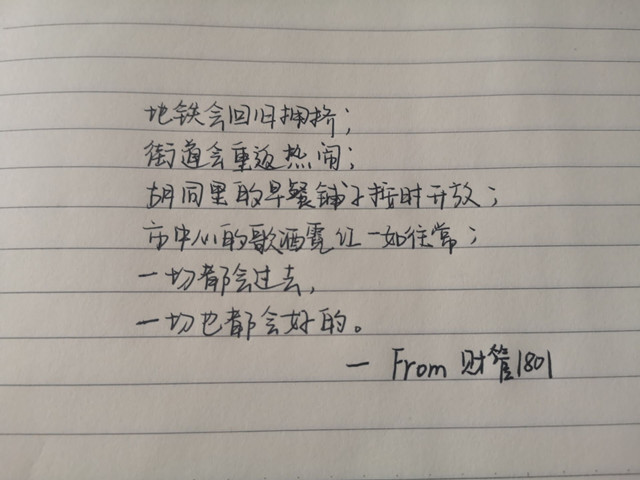 地铁会回归拥挤；
街道会重返热闹；
胡同里的早餐铺子按时开放；
市中心的歌酒霓红一如往常；
一切都会过去，
一切也都会好的。
— From 财管1801